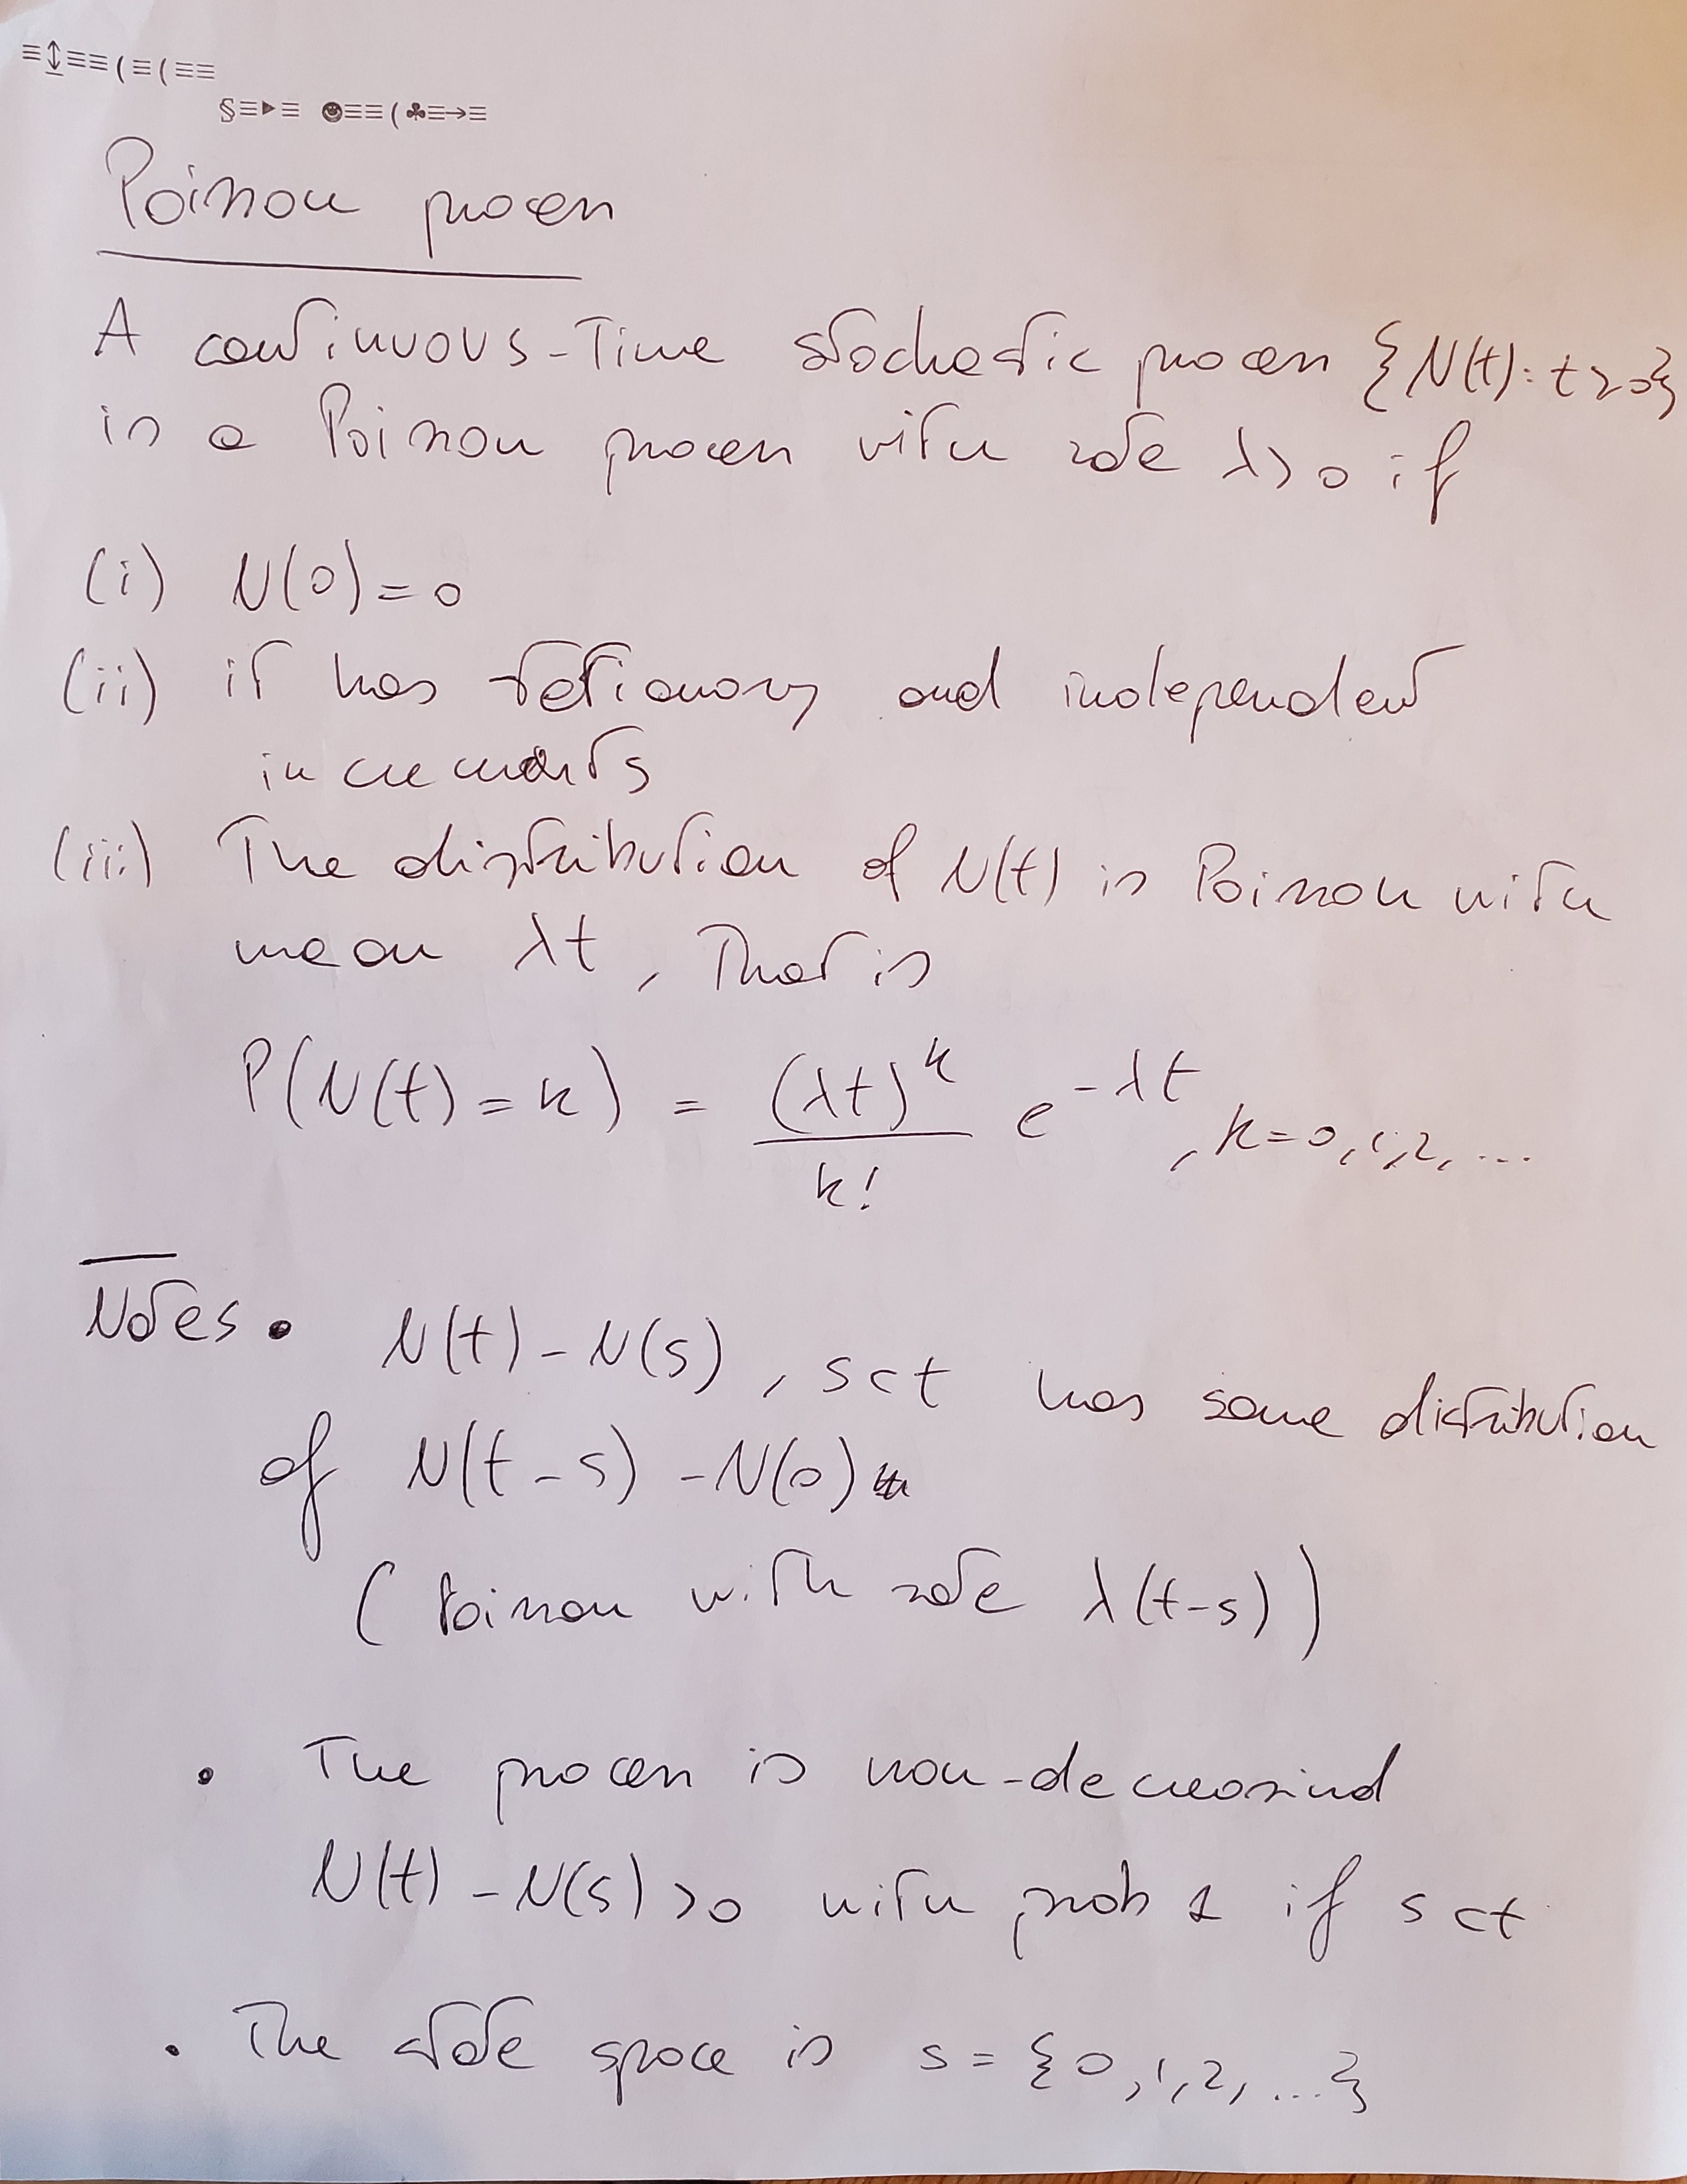 ≡↨≡≡(≡(≡≡
§≡►≡ ☻≡≡(♣≡→≡
Poisson process
A continuous-Time stochastic process {N(t): t≥0}
is a Poisson process with rate λ>0 if
(i) N(0)=0
(ii) it has stationary and independent
increments
(iii) The distribution of N(t) is Poisson with
mean λt, That is
P(N(t)=k) = (λt)^k / k! e^{-λt}, k=0,1,2,...
Notes • N(t)-N(s), s<t has same distribution
of N(t-s)-N(0)
(Poisson with rate λ(t-s))
• The process is non-decreasind
N(t)-N(s)>0 with prob 1 if s<t
• The state space is s={0,1,2,...}